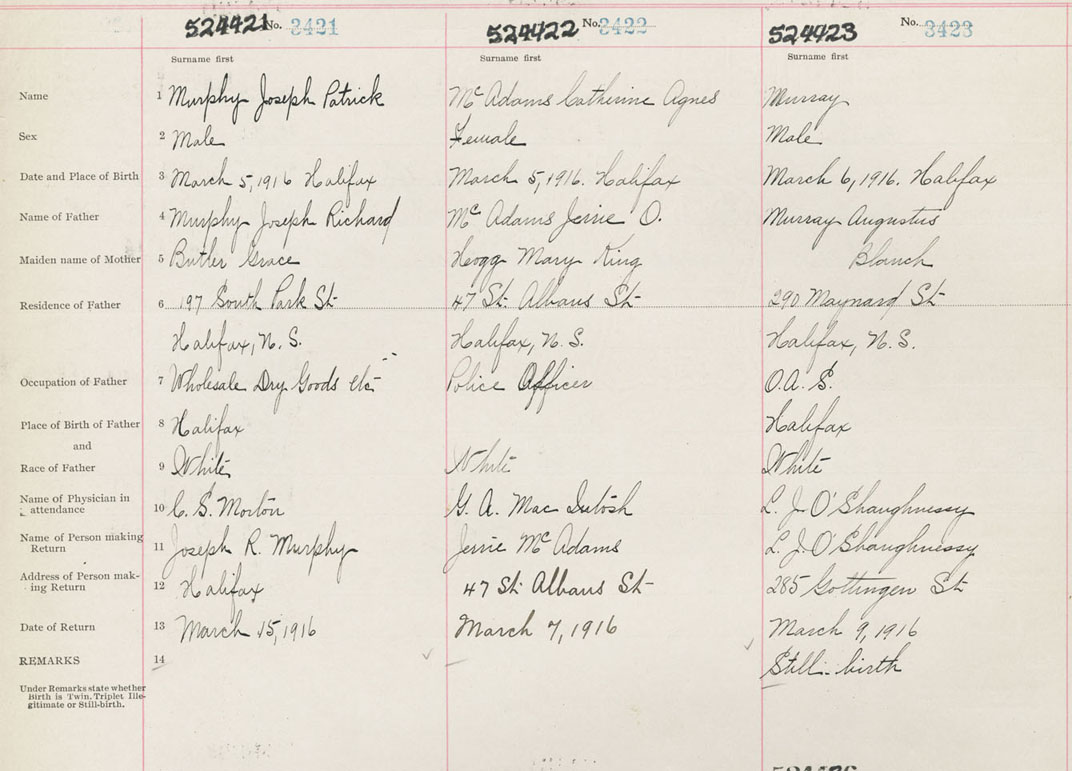 524421 No. 3421 524422 No. 3422 524423 No. 3423
Surname first Surname first Surname first
Name 1 Murphy Joseph Patrick McAdams Catherine Agnes Murray
Sex 2 Male Female Male
Date and Place of Birth 3 March 5, 1916 Halifax March 5, 1916. Halifax March 6, 1916. Halifax
Name of Father 4 Murphy Joseph Richard McAdams Jerrie O. Murray Augustus
Maiden name of Mother 5 Butler Grace Hogg Mary King Blanch
Residence of Father 6 197 South Park St 47 St. Albans St 290 Maynard St
Halifax, N.S. Halifax, N.S. Halifax, N.S.
Occupation of Father 7 Wholesale Dry Goods etc Police Officer O.A.S.
Place of Birth of Father 8 Halifax Halifax
and
Race of Father 9 White White White
Name of Physician in
attendance 10 C. S. Morton G. A. MacIntosh L. J. O'Shaughnessy
Name of Person making
Return 11 Joseph R. Murphy Jerrie McAdams L. J. O'Shaughnessy
Address of Person mak-
ing Return 12 Halifax 47 St. Albans St 285 Gottingen St
Date of Return 13 March 15, 1916 March 7, 1916 March 9, 1916
REMARKS 14 Still-birth
Under Remarks state whether
Birth is Twin, Triplet Ille-
gitimate or Still-birth.